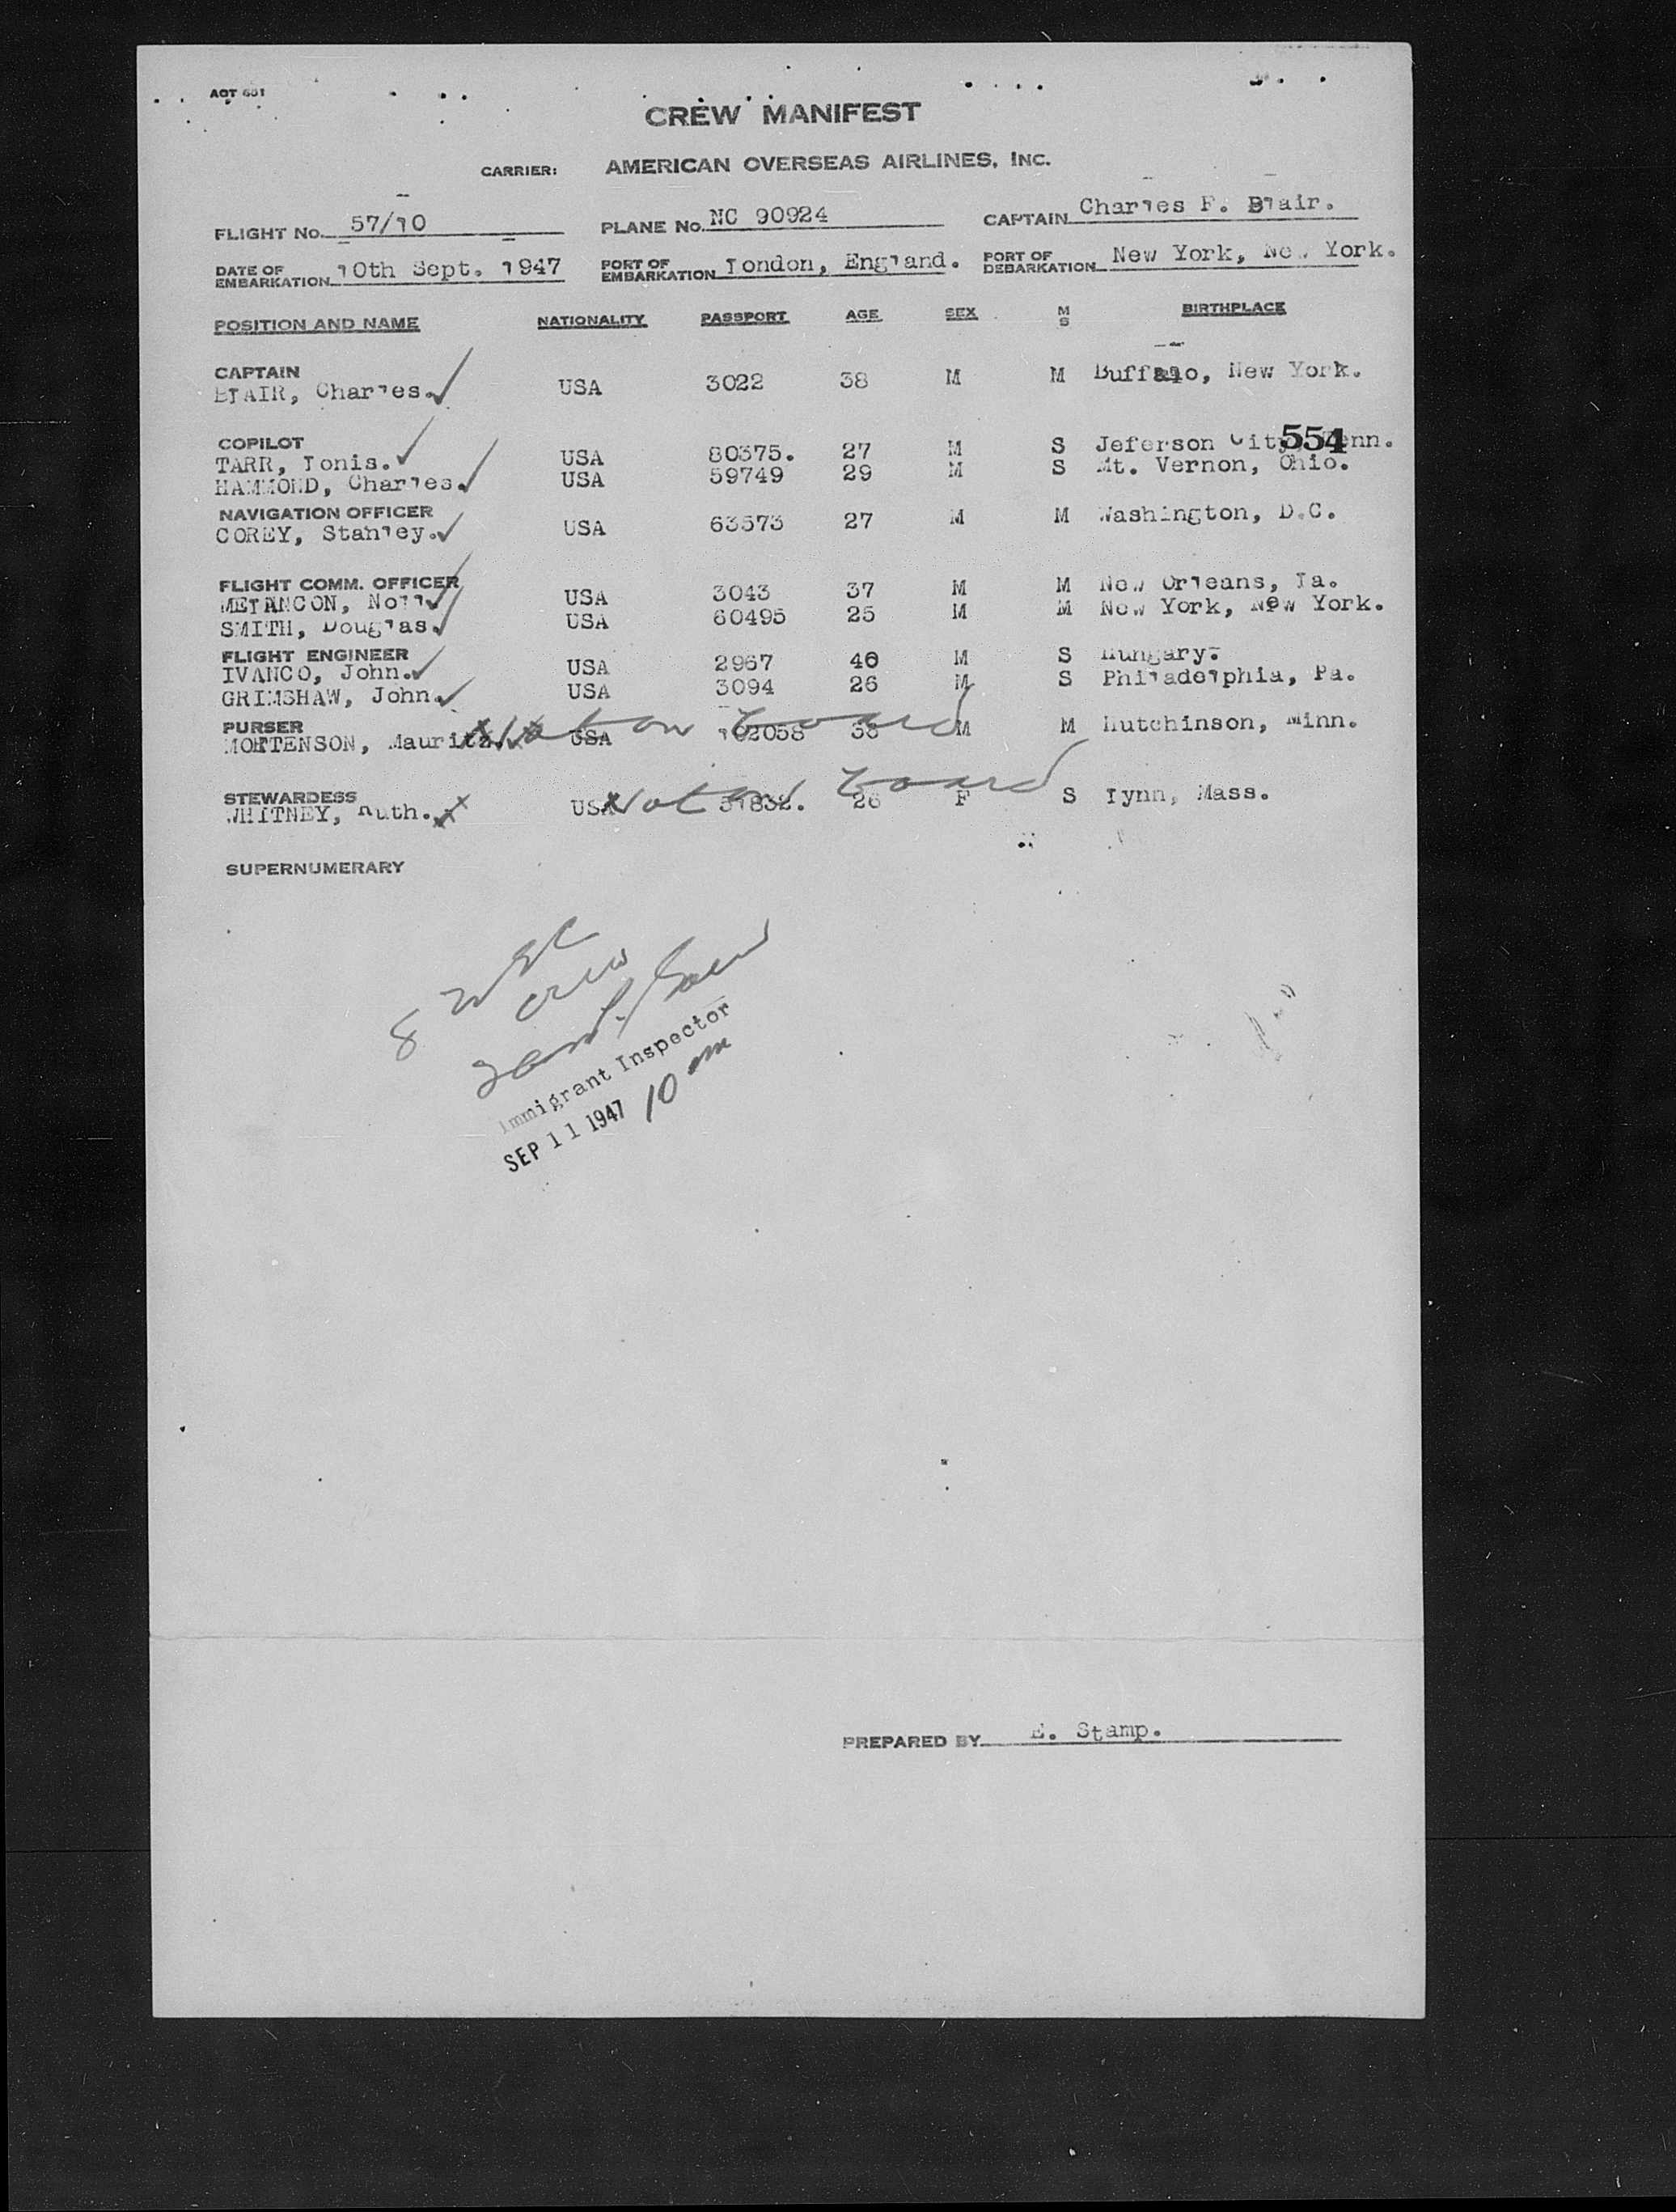 AOT 601
CREW MANIFEST
CARRIER: AMERICAN OVERSEAS AIRLINES, INC.
FLIGHT No. 57/10 PLANE No. NC 90924 CAPTAIN Charles F. Blair.
DATE OF EMBARKATION 10th Sept. 1947 PORT OF EMBARKATION London, England. PORT OF DEBARKATION New York, New York.
POSITION AND NAME NATIONALITY PASSPORT AGE SEX M S BIRTHPLACE
CAPTAIN
BLAIR, Charles. USA 3022 38 M M Buffalo, New York.
COPILOT
TARR, Lonis. USA 80375. 27 M S Jeferson City, Tenn.
554
HAMMOND, Charles. USA 59749 29 M S Mt. Vernon, Ohio.
NAVIGATION OFFICER
COREY, Stanley. USA 63573 27 M M Washington, D.C.
FLIGHT COMM. OFFICER
MELANCON, Noll USA 3043 37 M M New Orleans, La.
SMITH, Douglas. USA 60495 25 M M New York, New York.
FLIGHT ENGINEER
IVANCO, John. USA 2967 40 M S Hungary.
GRIMSHAW, John. USA 3094 26 M S Philadelphia, Pa.
PURSER
MORTENSON, Mauritz. USA 102058 38 M M Hutchinson, Minn.
Not on board
STEWARDESS
WHITNEY, Ruth. USA 51832. 26 F S Lynn, Mass.
Not on board
SUPERNUMERARY
8 USC
crew
Immigrant Inspector
SEP 11 1947 10 am
PREPARED BY E. Stamp.